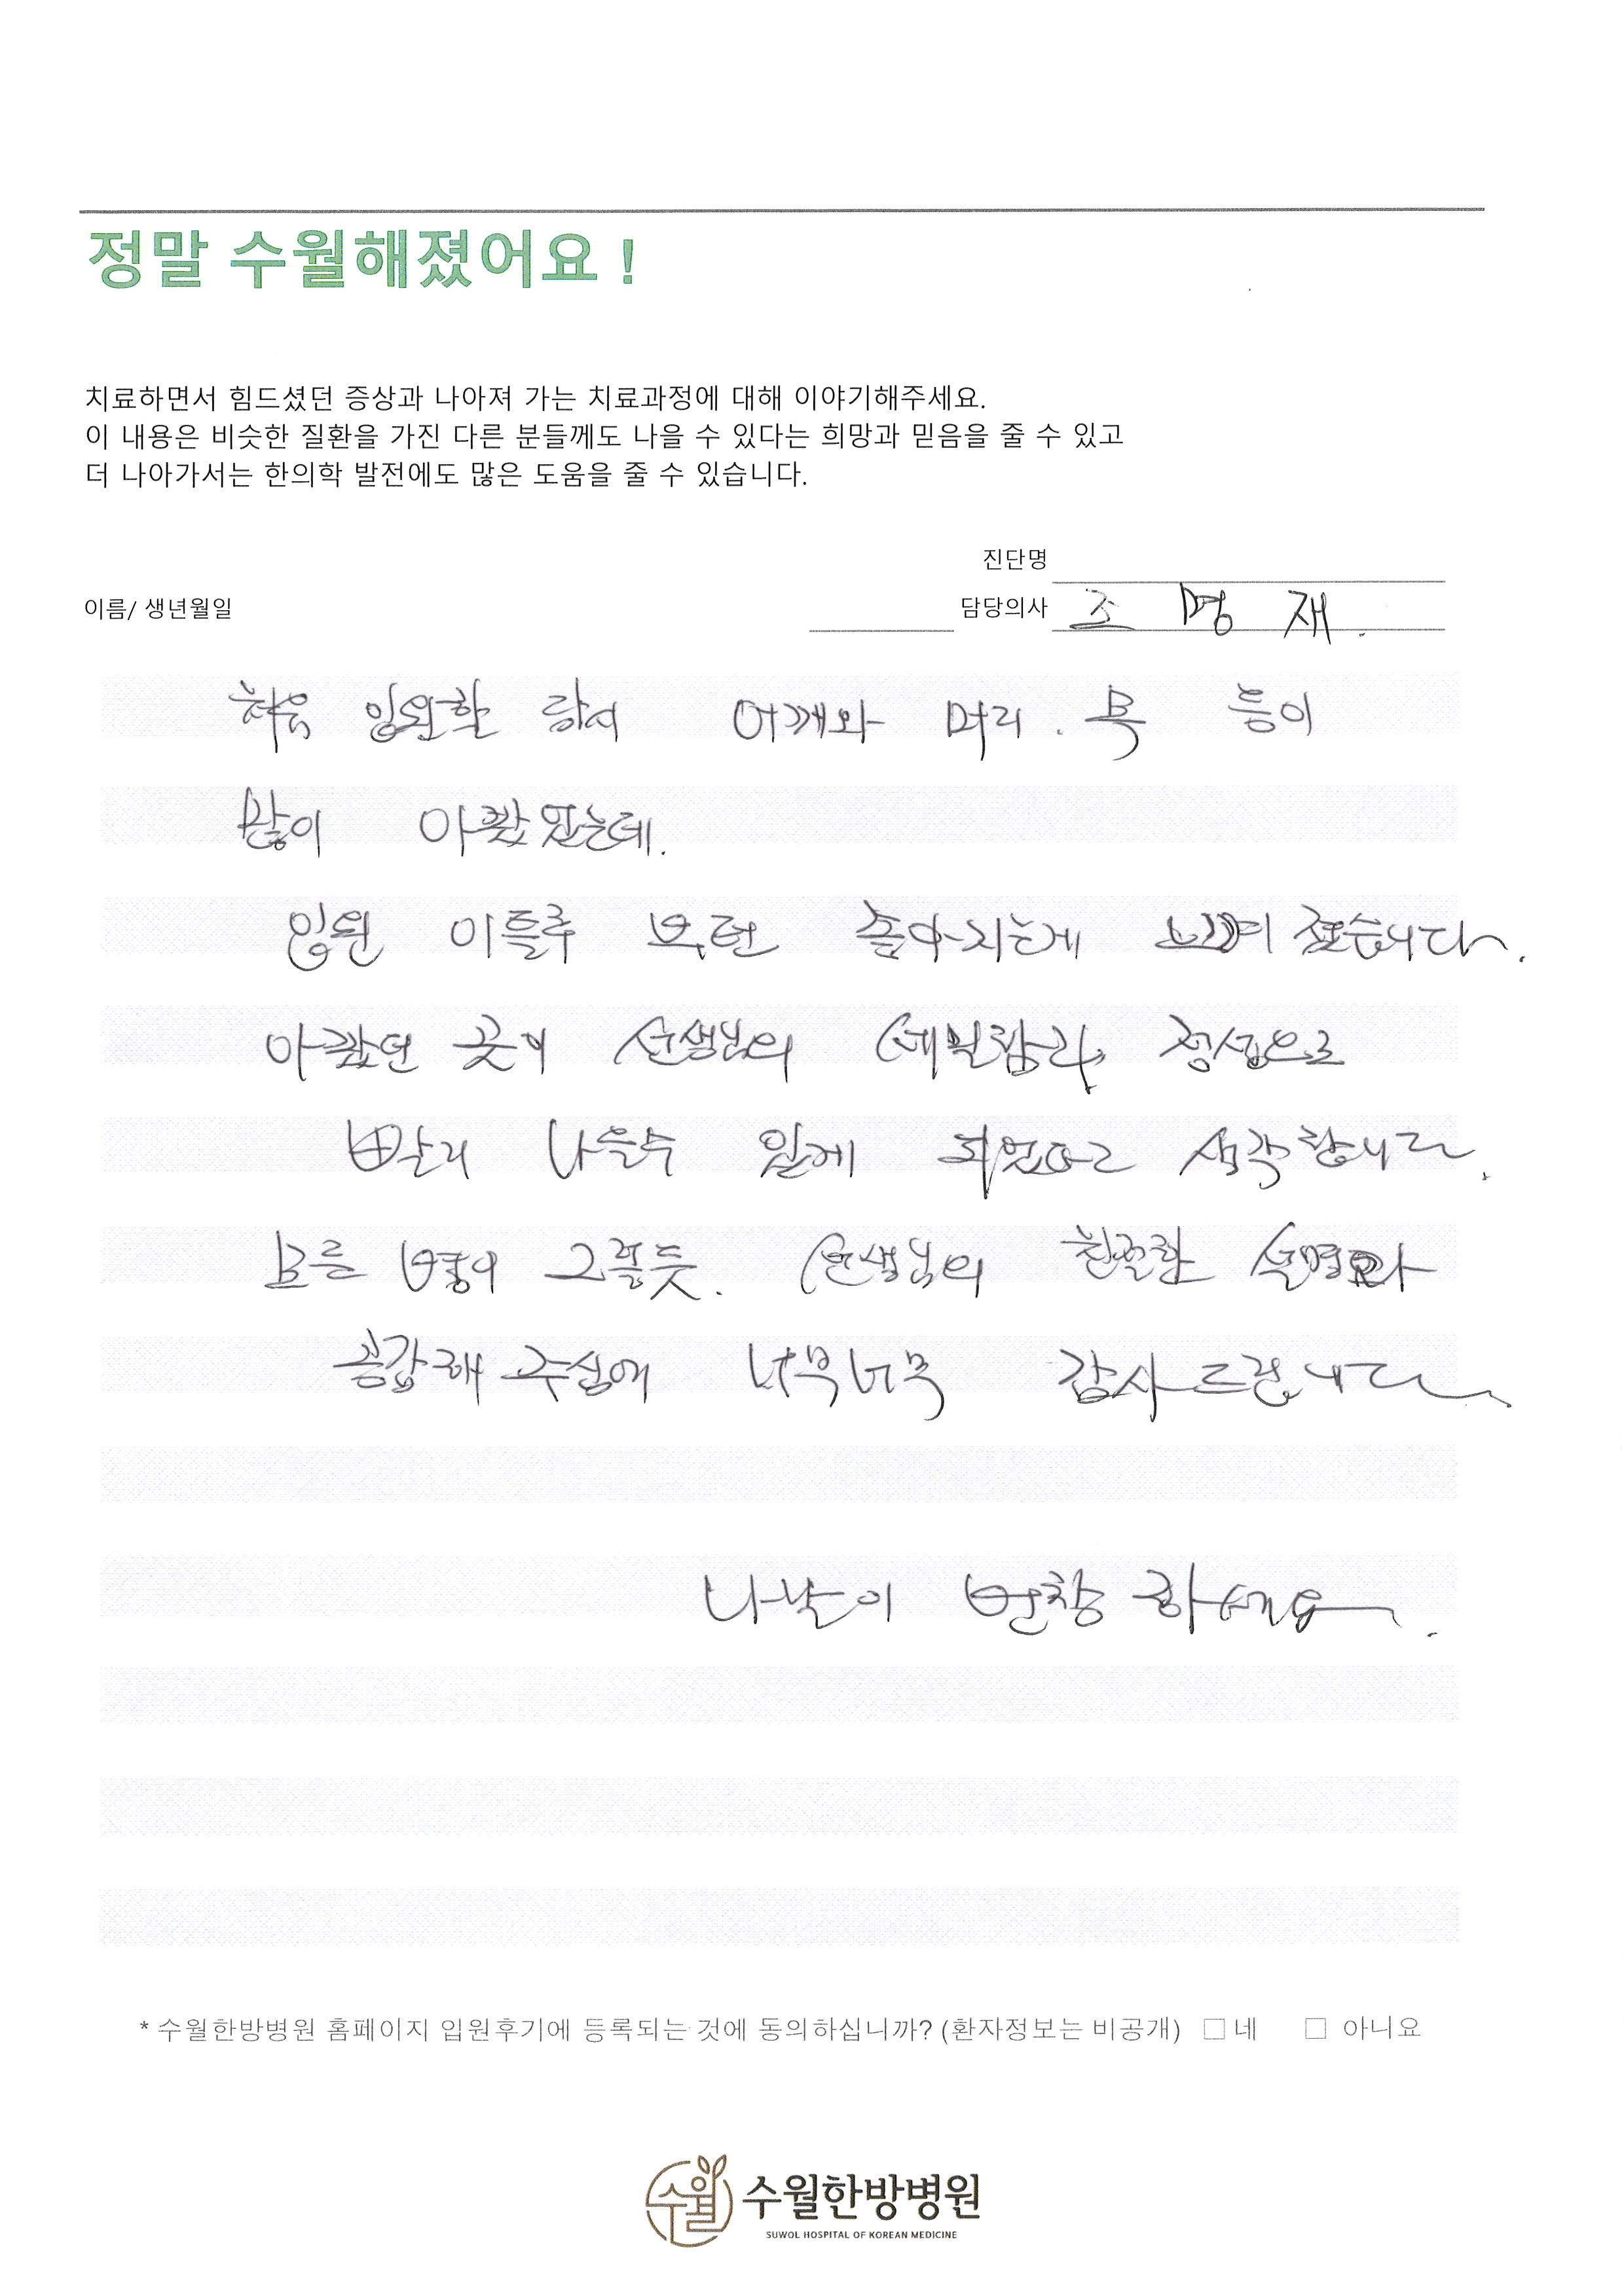 정말 수월해졌어요 !
치료하면서 힘드셨던 증상과 나아져 가는 치료과정에 대해 이야기해주세요.
이 내용은 비슷한 질환을 가진 다른 분들께도 나을 수 있다는 희망과 믿음을 줄 수 있고
더 나아가서는 한의학 발전에도 많은 도움을 줄 수 있습니다.
진단명
이름/ 생년월일 담당의사 조명재.
처음 입원할 당시 어깨와 머리. 목 등이
많이 아팠었는데.
입원 이틀후 부턴 좋아지는게 느껴 졌습니다.
아팠던 곳이 선생님의 세밀함과 정성으로
빨리 나을수 있게 되었다고 생각합니다.
모든 병이 그렇듯. 선생님의 친절한 설명과
공감해 주심에 너무너무 감사드립니다.
나날이 번창하세요.
* 수월한방병원 홈페이지 입원후기에 등록되는 것에 동의하십니까? (환자정보는 비공개) □ 네 □ 아니요
수월 수월한방병원
SUWOL HOSPITAL OF KOREAN MEDICINE